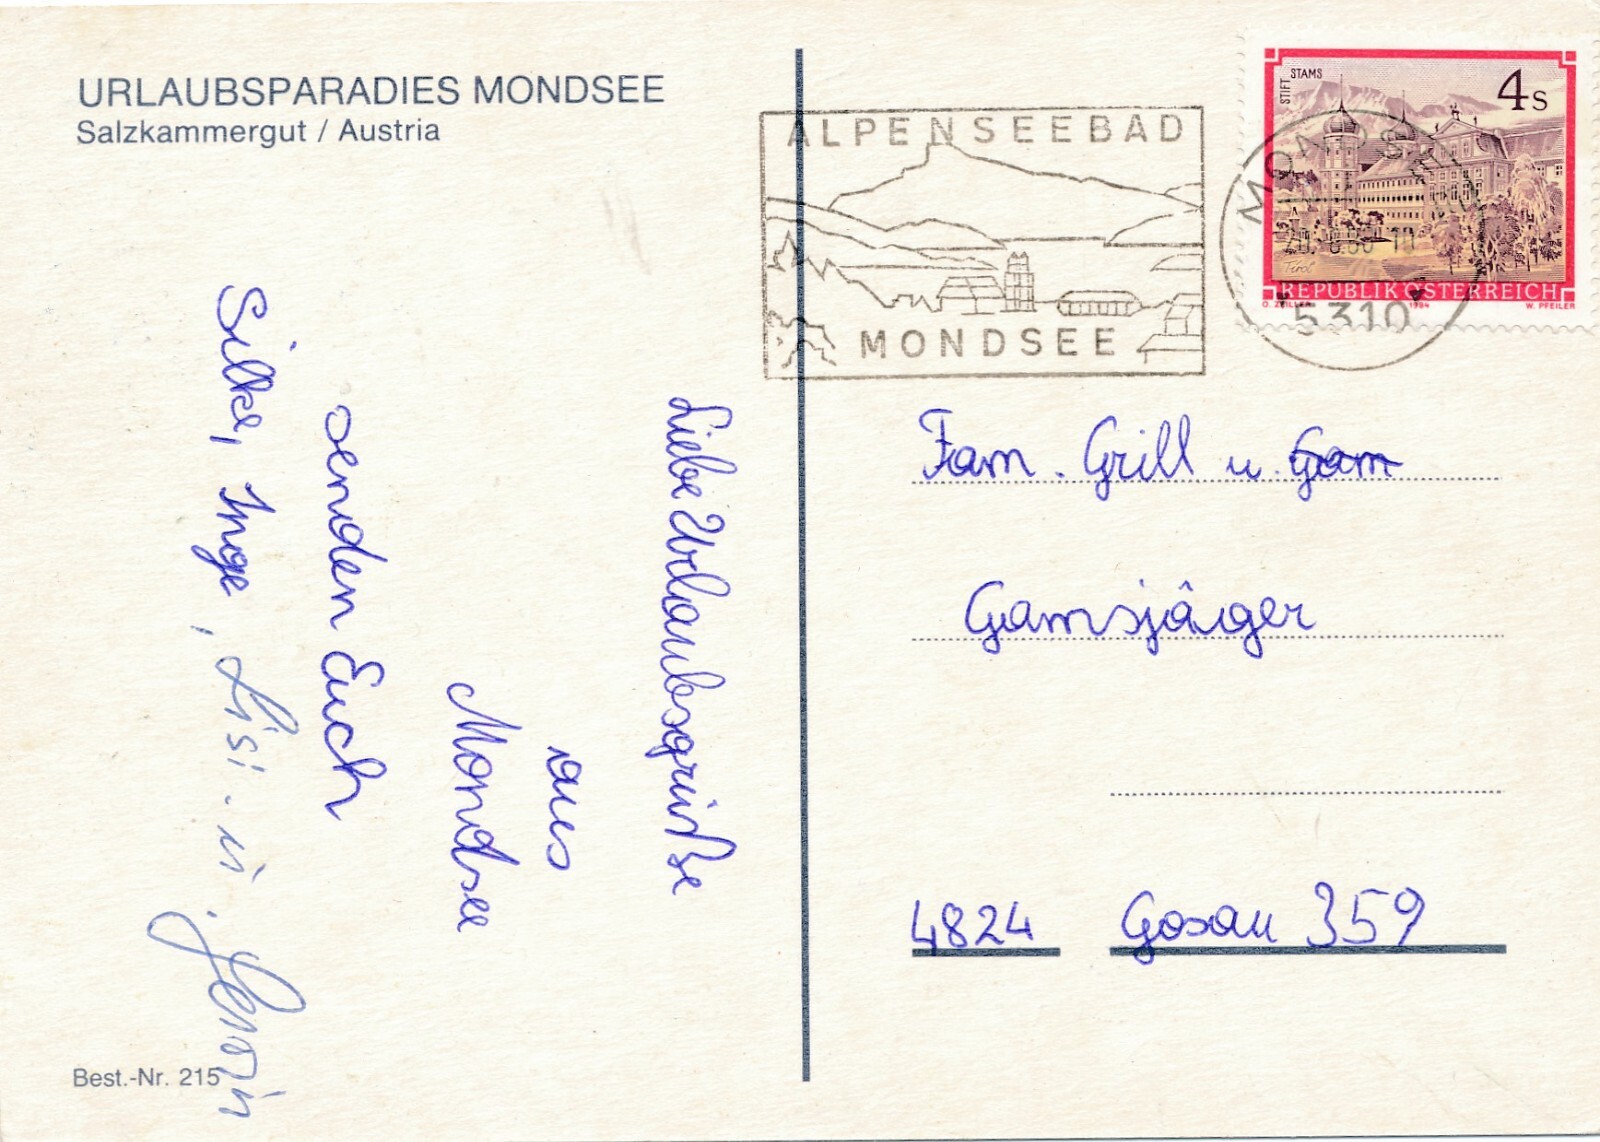 URLAUBSPARADIES MONDSEE
Salzkammergut / Austria
Liebe Urlaubsgrüße
aus
Mondsee
senden Euch
Silke, Inge, Lisi. u.
Best.-Nr. 215
ALPENSEEBAD
MONDSEE
STIFT STAMS
4s
Tirol
REPUBLIK ÖSTERREICH
O. ZEILLER 1984 W. PFEILER
MONDSEE
5310
Fam. Grill u. Gam
Gamsjäger
4824 Gosau 359